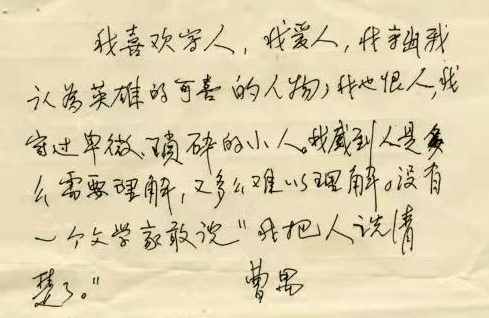 我喜欢写人，我爱人，我写出我
认为英雄的可喜的人物，我也恨人，我
写过卑微、琐碎的小人。我感到人是多
么需要理解，又多么难以理解。没有
一个文学家敢说“我把人说清
楚了。”　曹禺